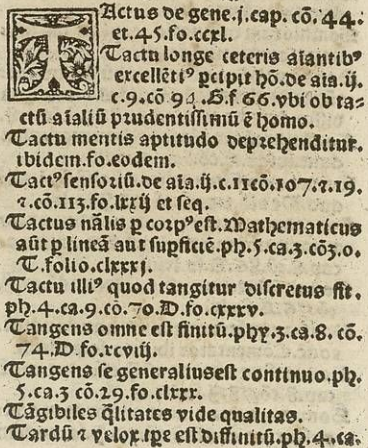 TActus de gene.j.cap. cō.44.
et.45.fo.ccxl.
Tactu longe ceteris aīantibꝰ
excellētiꝰ ꝑcipit hō.de aīa.ij.
c.9.cō 94 .G.f 66.vbi ob ta-
ctū aīaliū prudentissimū ē homo.
Tactu mentis aptitudo deprehenditur.
ibidem.fo.eodem.
Tactꝰ sensoriū.de aīa.ij.c.11cō.107.⁊.19.
⁊.cō.113.fo.lxxij et seq.
Tactus nālis ꝑ corpꝰ est.Mathematicus
aūt ꝑ lineā aut suꝑficiē.ph.5.ca.3.cō3.o.
T.folio.clxxxj.
Tactu illiꝰ quod tangitur discretus fit.
ph.4.ca.9.cō.70.D.fo.cxxxv.
Tangens omne est finitū.phy.3.ca.8. cō.
74.D.fo.xcviij.
Tangens se generalius est continuo.ph.
5.ca.3 cō.29.fo.clxxx.
Tāgibiles q̄litates vide qualitas.
Tardū ⁊ velox tꝑe est diffinitū.ph.4.ca.